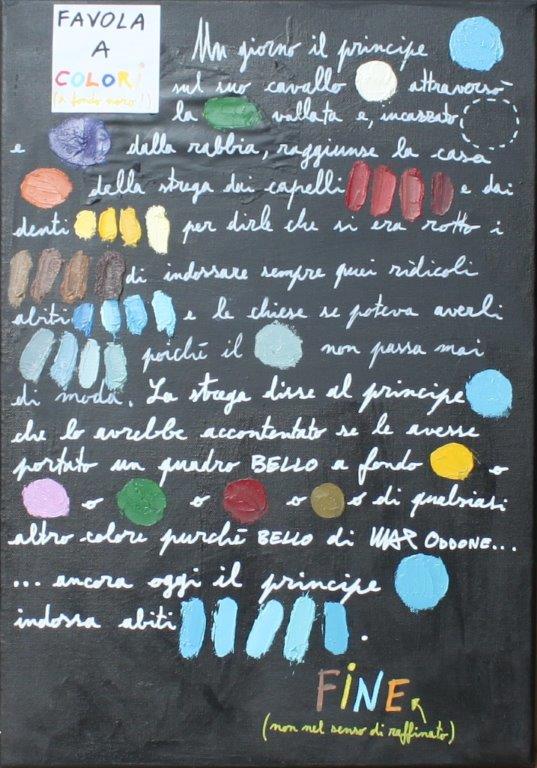 FAVOLA
A
COLORI
(a fondo nero!)
Un giorno il principe
sul suo cavallo attraversò
la vallata e, incazzato
e dalla rabbia, raggiunse la casa
della strega dai capelli e dai
denti per dirle che si era rotto i
di indossare sempre quei ridicoli
abiti e le chiese se poteva averli
poiché il non passa mai
di moda. La strega disse al principe
che lo avrebbe accontentato se le avesse
portato un quadro BELLO a fondo o
o o o o di qualsiasi
altro colore purché BELLO di MAX ODDONE...
... ancora oggi il principe
indossa abiti .
FINE
(non nel senso di raffinato)